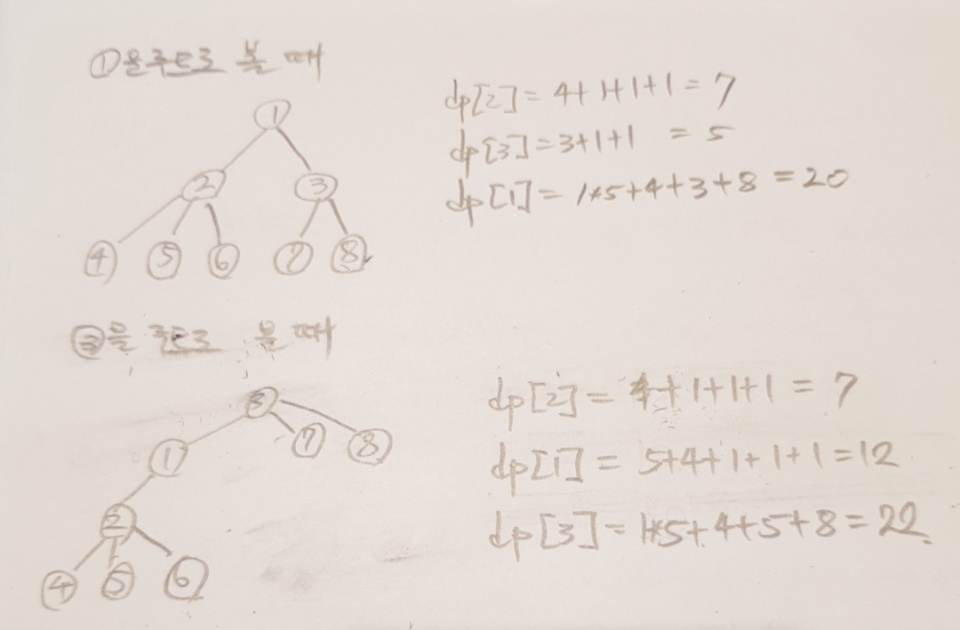 ①을 루트로 볼 때
dp[2] = 4+1+1+1 = 7
dp[3] = 3+1+1 = 5
dp[1] = 1*5+4+3+8 = 20
①
② ③
④ ⑤ ⑥ ⑦ ⑧
③을 루트로 볼 때
dp[2] = 4+1+1+1 = 7
dp[1] = 5+4+1+1+1 = 12
dp[3] = 1*5+4+5+8 = 22
③
① ⑦ ⑧
②
④ ⑤ ⑥